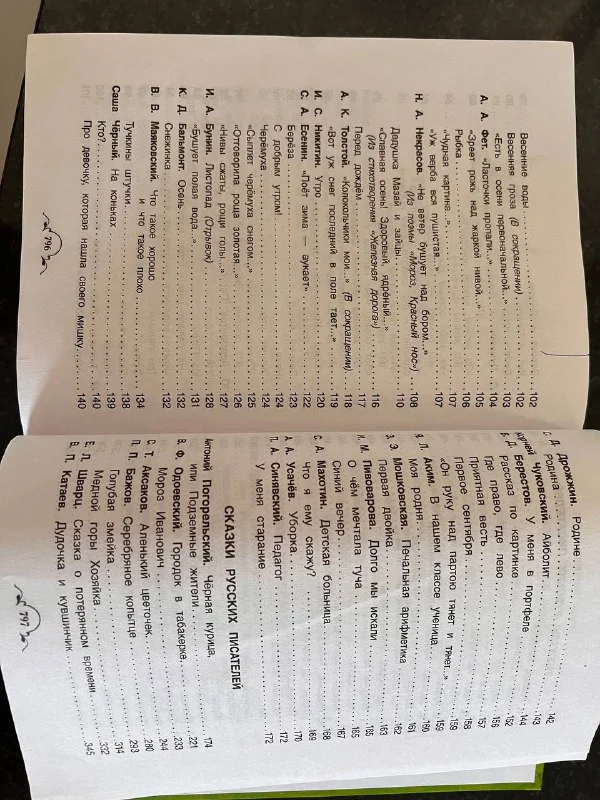 Весенние воды 102
Весенняя гроза (В сокращении) 102
«Есть в осени первоначальной...» 103
А. А. Фет. «Ласточки пропали...» 104
«Зреет рожь над жаркой нивой...» 105
Рыбка 106
«Чудная картина...» 107
«Уж верба вся пушистая...» 107
Н. А. Некрасов. «Не ветер бушует над бором...»
(Из поэмы «Мороз, Красный нос») 108
Дедушка Мазай и зайцы 110
«Славная осень! Здоровый, ядрёный...»
(Из стихотворения «Железная дорога») 116
Перед дождём 117
А. К. Толстой. «Колокольчики мои...» (В сокращении) 118
«Вот уж снег последний в поле тает...» 119
И. С. Никитин. Утро 120
С. А. Есенин. «Поёт зима — аукает» 122
Берёза 123
С добрым утром! 124
Черёмуха 124
«Сыплет черёмуха снегом...» 125
«Отговорила роща золотая...» 126
«Нивы сжаты, рощи голы...» 127
И. А. Бунин. Листопад (Отрывок) 128
«Бушует полая вода...» 131
К. Д. Бальмонт. Осень 132
Снежинка 132
В. В. Маяковский. Что такое хорошо
и что такое плохо 134
Тучкины штучки 138
Саша Чёрный. На коньках 139
Кто? 140
Про девочку, которая нашла своего мишку 140
796
С. Д. Дрожжин. Родине 142
Родина 143
Корней Чуковский. Айболит 144
Д. Берестов. У меня в портфеле 152
Рассказ по картинке 156
Где право, где лево 157
Приятная весть 158
Первое сентября 159
«Он руку над партою тянет и тянет...» 159
Л. Аким. В нашем классе ученица 160
Моя родня 161
Э. Э. Мошковская. Печальная арифметика 162
Первая двойка 163
М. Пивоварова. Долго мы искали 165
О чём мечтала туча 165
Синий вечер 167
С. А. Махотин. Детская больница 168
Что я ему скажу? 169
А. А. Усачёв. Уборка 170
П. А. Синявский. Педагог 172
У меня старание 172
СКАЗКИ РУССКИХ ПИСАТЕЛЕЙ
Антоний Погорельский. Чёрная курица,
или Подземные жители 174
В. Ф. Одоевский. Городок в табакерке 221
Мороз Иванович 233
С. Т. Аксаков. Аленький цветочек 244
П. П. Бажов. Серебряное копытце 280
Голубая змейка 293
Медной горы Хозяйка 314
Е. Л. Шварц. Сказка о потерянном времени 332
В. П. Катаев. Дудочка и кувшинчик 345
797